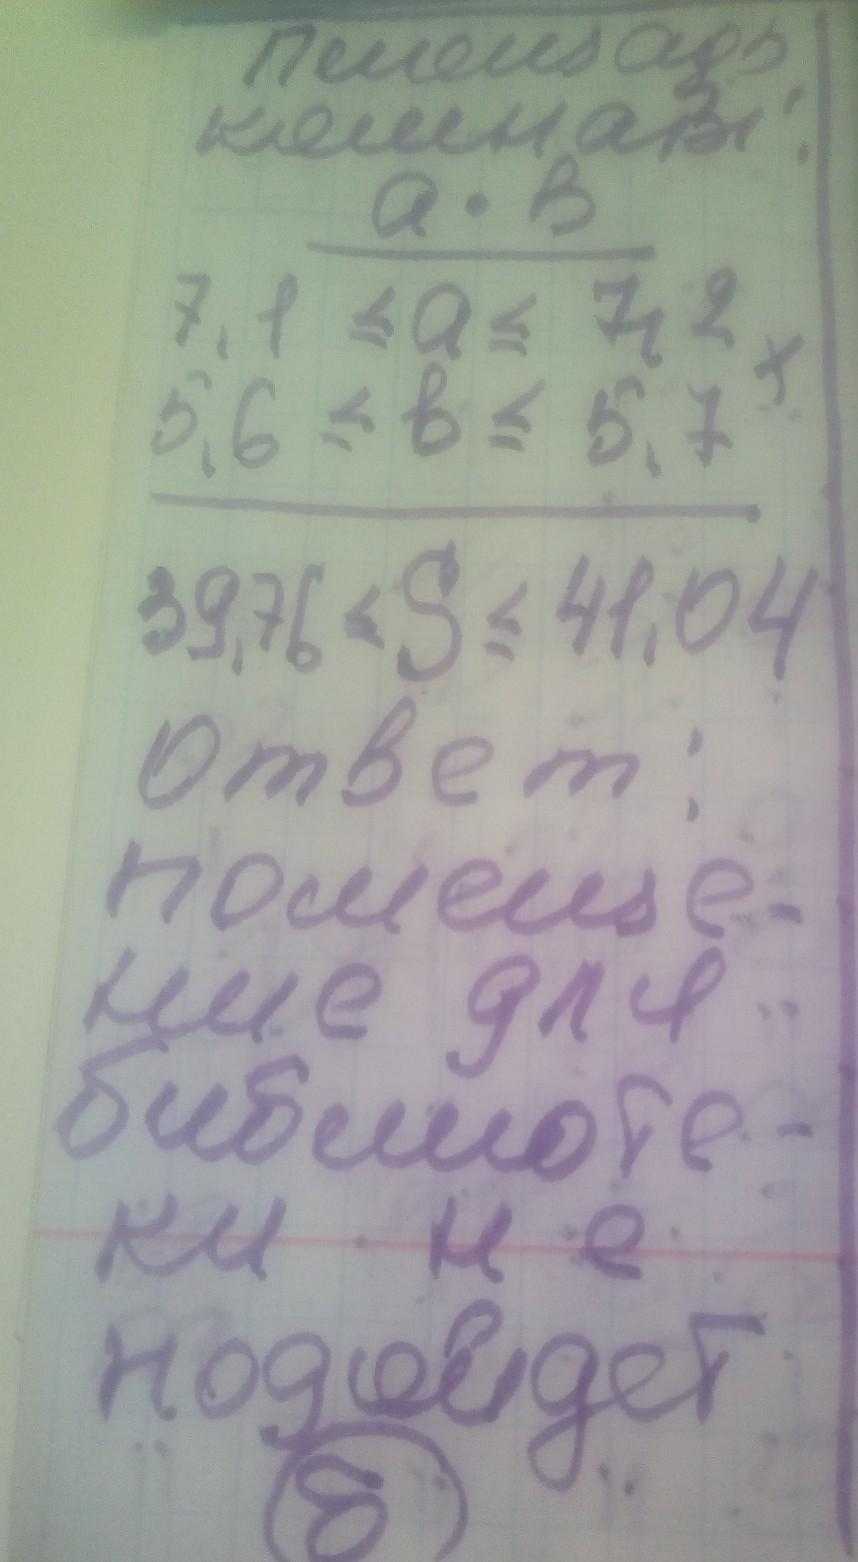 Площадь
комнаты:
a · b
7,1 ≤ a ≤ 7,2
5,6 ≤ b ≤ 5,7 ×
39,76 ≤ S ≤ 41,04
Ответ:
помеще-
ние для
библиоте-
ки не
подойдет
б